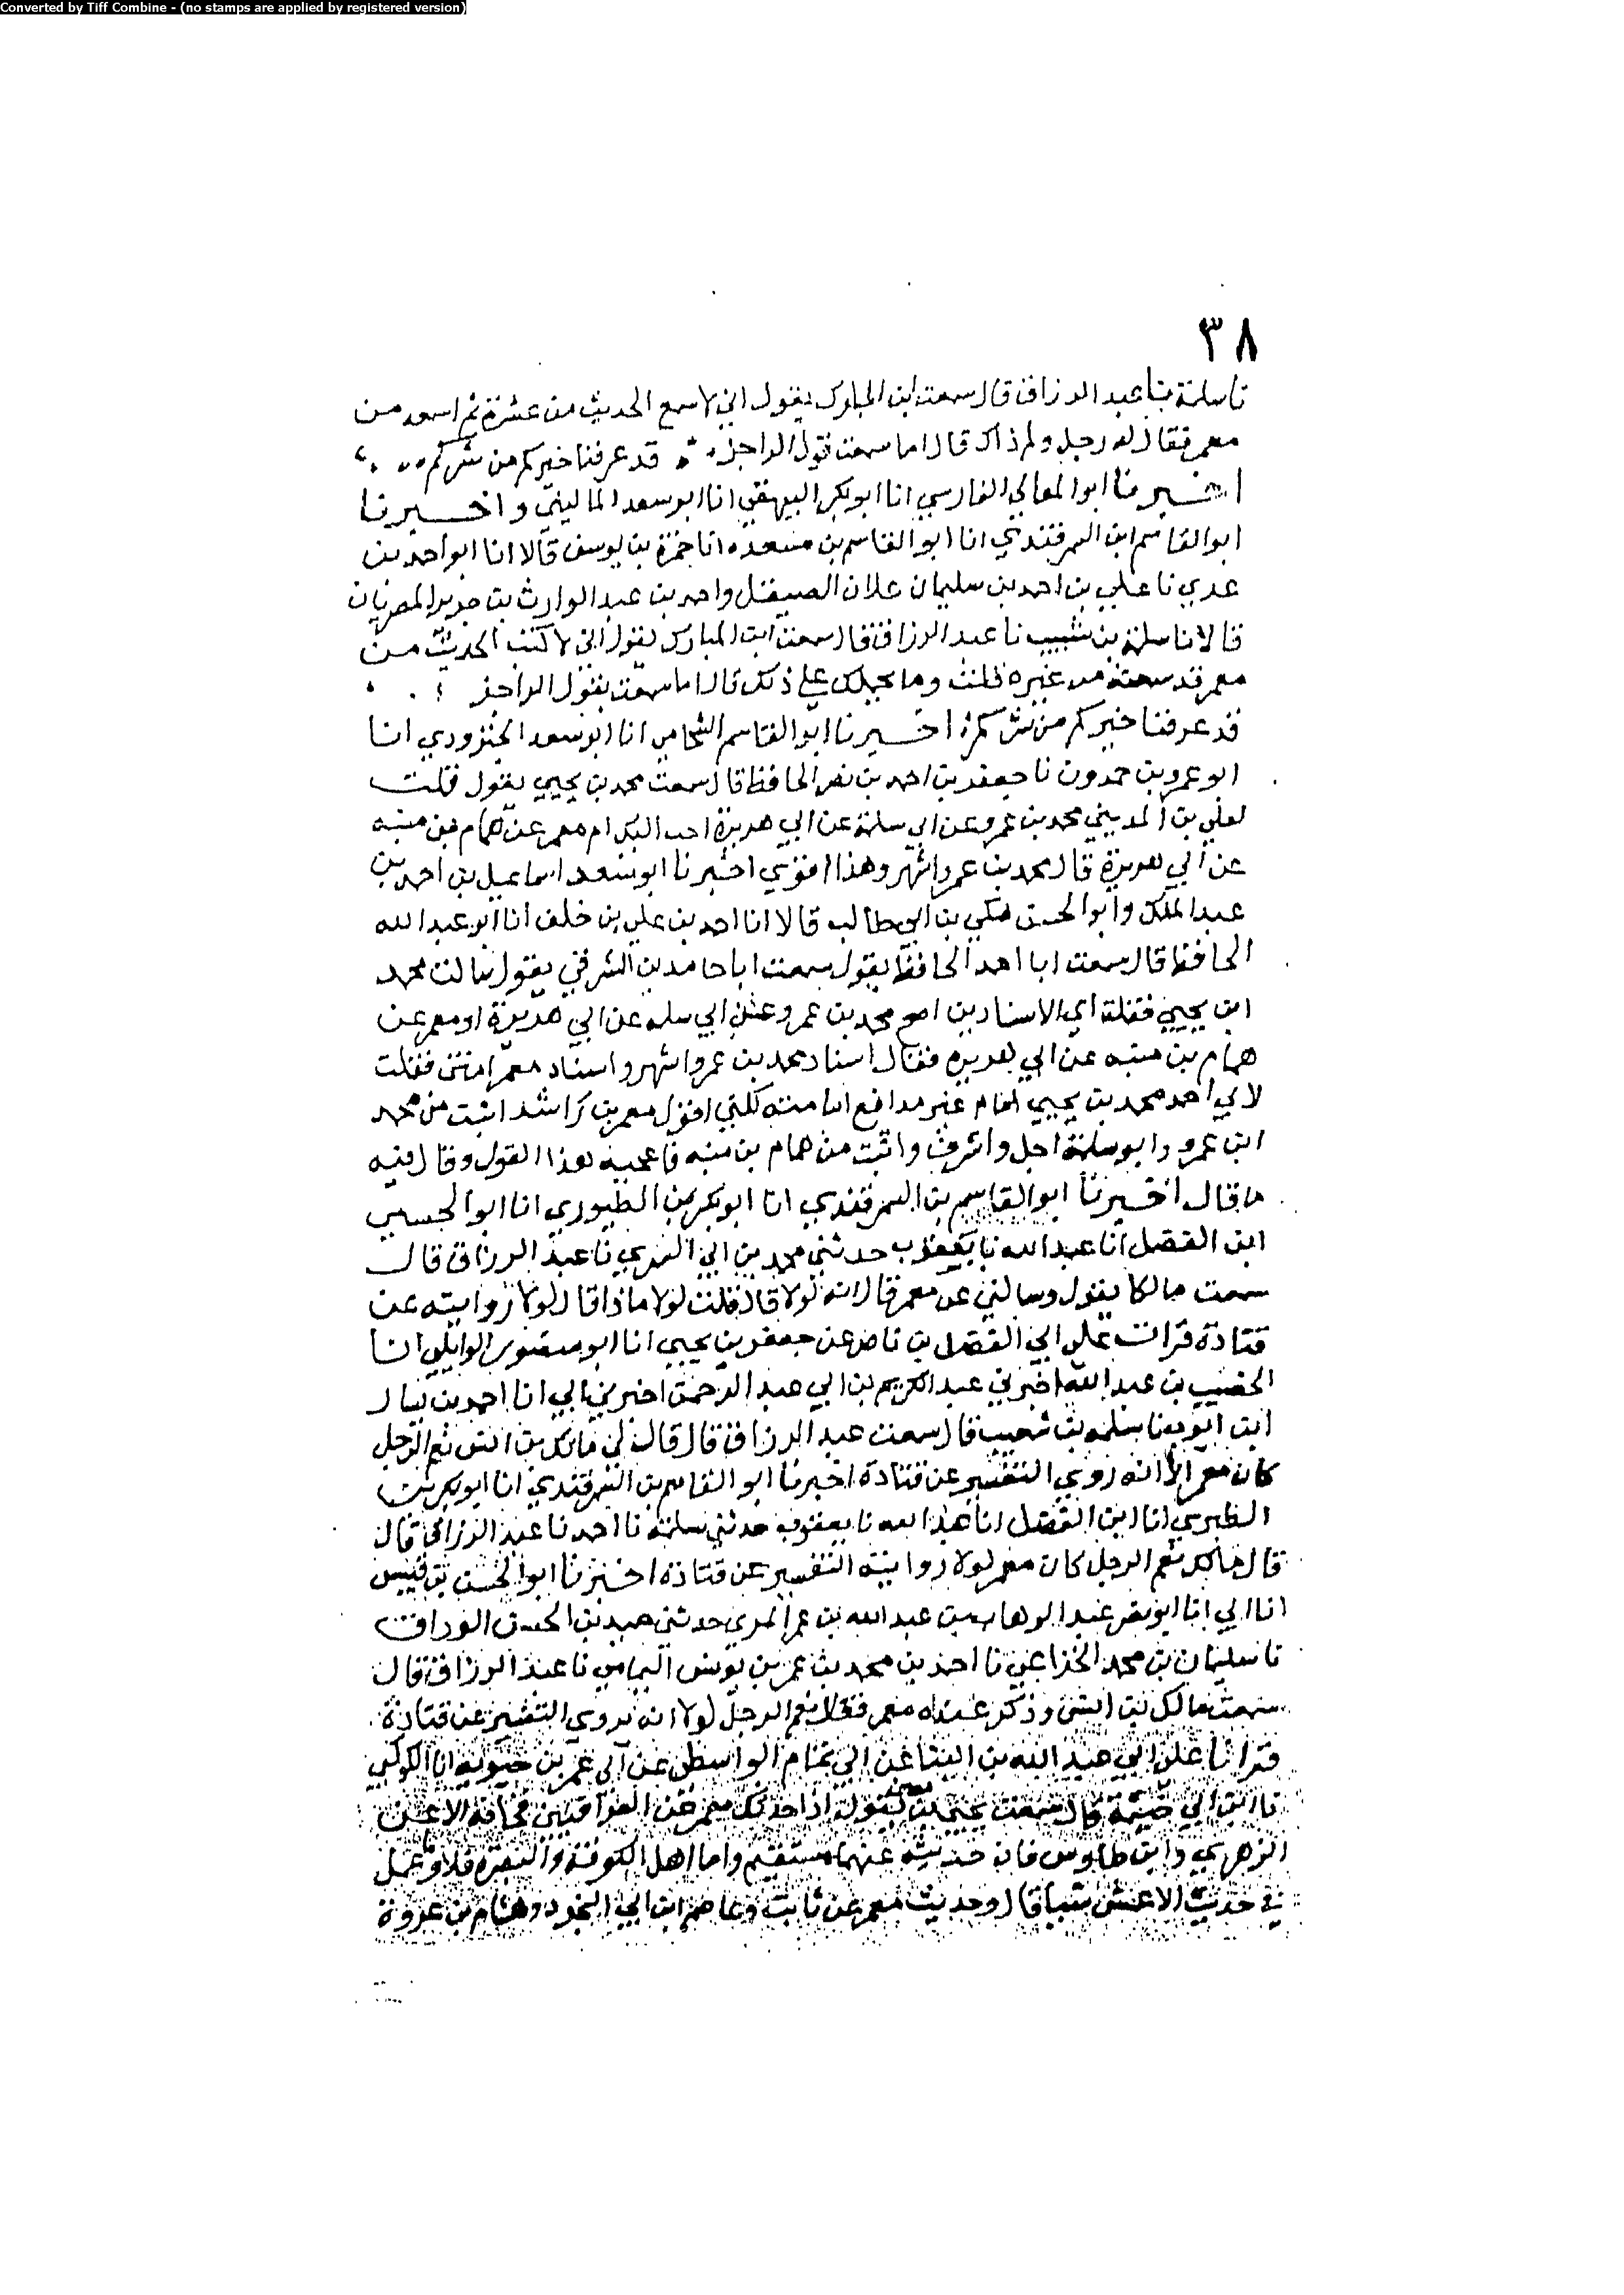 Converted by Tiff Combine - (no stamps are applied by registered version)
٣٨
نا سلمة نا عبد الرزاق قال سمعت ابن المبارك يقول اني لاسمع الحديث من عشرة ثم اسمعه من
معمر فقال له رجل ولم ذاك قال اما سمعت قول الراجز قد عرفنا خيركم من شركم
اخبرنا ابو المعالي الفارسي انا ابو بكر البيهقي انا ابو سعد الماليني واخبرنا
ابو القاسم ابن السمرقندي انا ابو القاسم بن مسعده انا حمزة بن يوسف قالا انا ابو احمد بن
عدي نا علي بن احمد بن سليمان علان الصيقل واحمد بن عبد الوارث بن جرير المصريان
قالا نا سلمة بن شبيب نا عبد الرزاق قال سمعت ابن المبارك يقول اني لاكتب الحديث من
معمر قد سمعته من غيره قلت وما يحملك علي ذلك قال اما سمعت بقول الراجز
قد عرفنا خيركم من شركم اخبرنا ابو القاسم الشحامي انا ابو سعد الجنزرودي انا
ابو عمرو بن حمدون نا جعفر بن احمد بن نصر الحافظ قال سمعت محمد بن يحيي يقول قلت
لعلي بن المديني محمد بن عمرو عن ابي سلمة عن ابي هريرة احب اليك ام معمر عن همام بن منبه
عن ابي هريرة قال محمد بن عمرو اشهر وهذا اقوي اخبرنا ابو سعد اسماعيل بن احمد بن
عبد الملك وابو الحسن مكي بن ابي طالب قالا انا احمد بن علي بن خلف انا ابو عبد الله
الحافظ قال سمعت ابا احمد الحافظ يقول سمعت ابا حامد بن الشرقي يقول سالت محمد
ابن يحيي فقلت اي الاسنادين اصح محمد بن عمرو عن ابي سلمه عن ابي هريرة او معمر عن
همام بن منبه عن ابي هريره فقال اسناد محمد بن عمرو اشهر واسناد معمر امتن فقلت
لابي احمد محمد بن يحيي امام غير مدافع امامته لكني اقول معمر بن راشد اثبت من محمد
ابن عمرو وابو سلمة اجل واشرف واثبت من همام بن منبه فاعجبه هذا القول وقال فيه
ما قال اخبرنا ابو القاسم بن السمرقندي انا ابو بكر بن الطبوري انا ابو الحسين
ابن الفضل انا عبد الله نا يعقوب حدثني محمد بن ابي السري نا عبد الرزاق قال
سمعت مالكا يقول وسالني عن معمر قال انه لولا قال قلت لولا ماذا قال لولا روايته عن
قتادة قرات علي ابي الفضل بن ناصر عن جعفر بن يحيي انا ابو منصور الوايلي انا
الخصيب بن عبد الله اخبرني عبد الكريم بن ابي عبد الرحمن اخبرني ابي انا احمد بن سيار
ابن ايوب نا سلمه بن شعيب قال سمعت عبد الرزاق قال قال لي مالك بن انس نعم الرجل
كان معمر الا انه روي التفسير عن قتادة اخبرنا ابو القاسم بن السمرقندي انا ابو بكر بن
الطبري انا ابن الفضل انا عبد الله نا يعقوب حدثني سلمة نا احمد نا عبد الرزاق قال
قال مالك نعم الرجل كان معمر لولا روايته التفسير عن قتادة اخبرنا ابو الحسن بن قبيس
انا ابي انا ابو نصر عبد الوهاب بن عبد الله بن عمر المري حدثني عبيد بن الحسن الوراق
نا سليمان بن محمد الخزاعي نا احمد بن محمد بن عمر بن يونس اليمامي نا عبد الرزاق قال
سمعت مالك بن انس وذكر عنده معمر فقال نعم الرجل لولا انه يروي التفسير عن قتادة
قرانا علي ابي عبد الله بن البنا عن ابي تمام الواسطي عن ابي عمر بن حيويه انا الكوكبي
نا ابن ابي خيثمة قال سمعت يحيي بن معين يقول اذا حدثك معمر عن العراقيين فخافه الا عن
الزهري وابن طاوس فان حديثه عنهما مستقيم واما اهل الكوفة والبصرة فلا وما عمل
في حديث الاعمش شيا قال وحديث معمر عن ثابت وعاصم ابن ابي النجود وهشام بن عروة